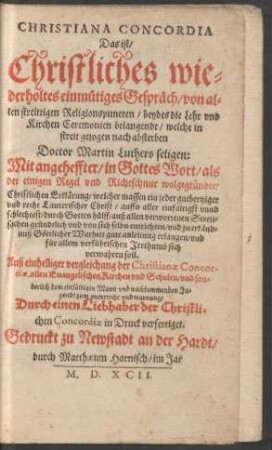 CHRISTIANA CONCORDIA
Das ist/
Christliches wie-
derholtes einmütiges Gespräch/von al-
len streitigen Religionspuncten / beydes die Lehr vnd
Kirchen Ceremonien belangendt / welche in
streit gezogen nach absterben
Doctor Martin Luthers seligen:
Mit angehefter/in Gottes Wort/als
der einigen Regel vnd Richtschnur wolgegründter/
Christlichen Erklärung/welcher massen ein jeder gutherziger
vnd recht Luterischer Christ / auffs aller einfältigst vnnd
schlechtest/durch Gottes hülff/auß allen verworrenen Streit-
sachen gründtlich vnd von sich selbs entrichten/vnd zu erkändt-
nuß Göttlicher Warheit gute anleitung erlangen/vnd
für allem verführischen Irrthumb sich
verwahren soll.
Auß einhelliger vergleichung der Christianæ Concor-
diæ, allen Evangelischen Kirchen vnd Schulen/vnd son-
derlich dem einfältigen Mann vnd nachkommenden Ju-
gendt zum vnterricht vnd warnung/
Durch einen Liebhaber der Christli-
chen Concordiæ in Druck verfertiget.
Gedruckt zu Newstadt an der Hardt/
durch Matthæum Harnisch/im Jar
M. D. XCII.